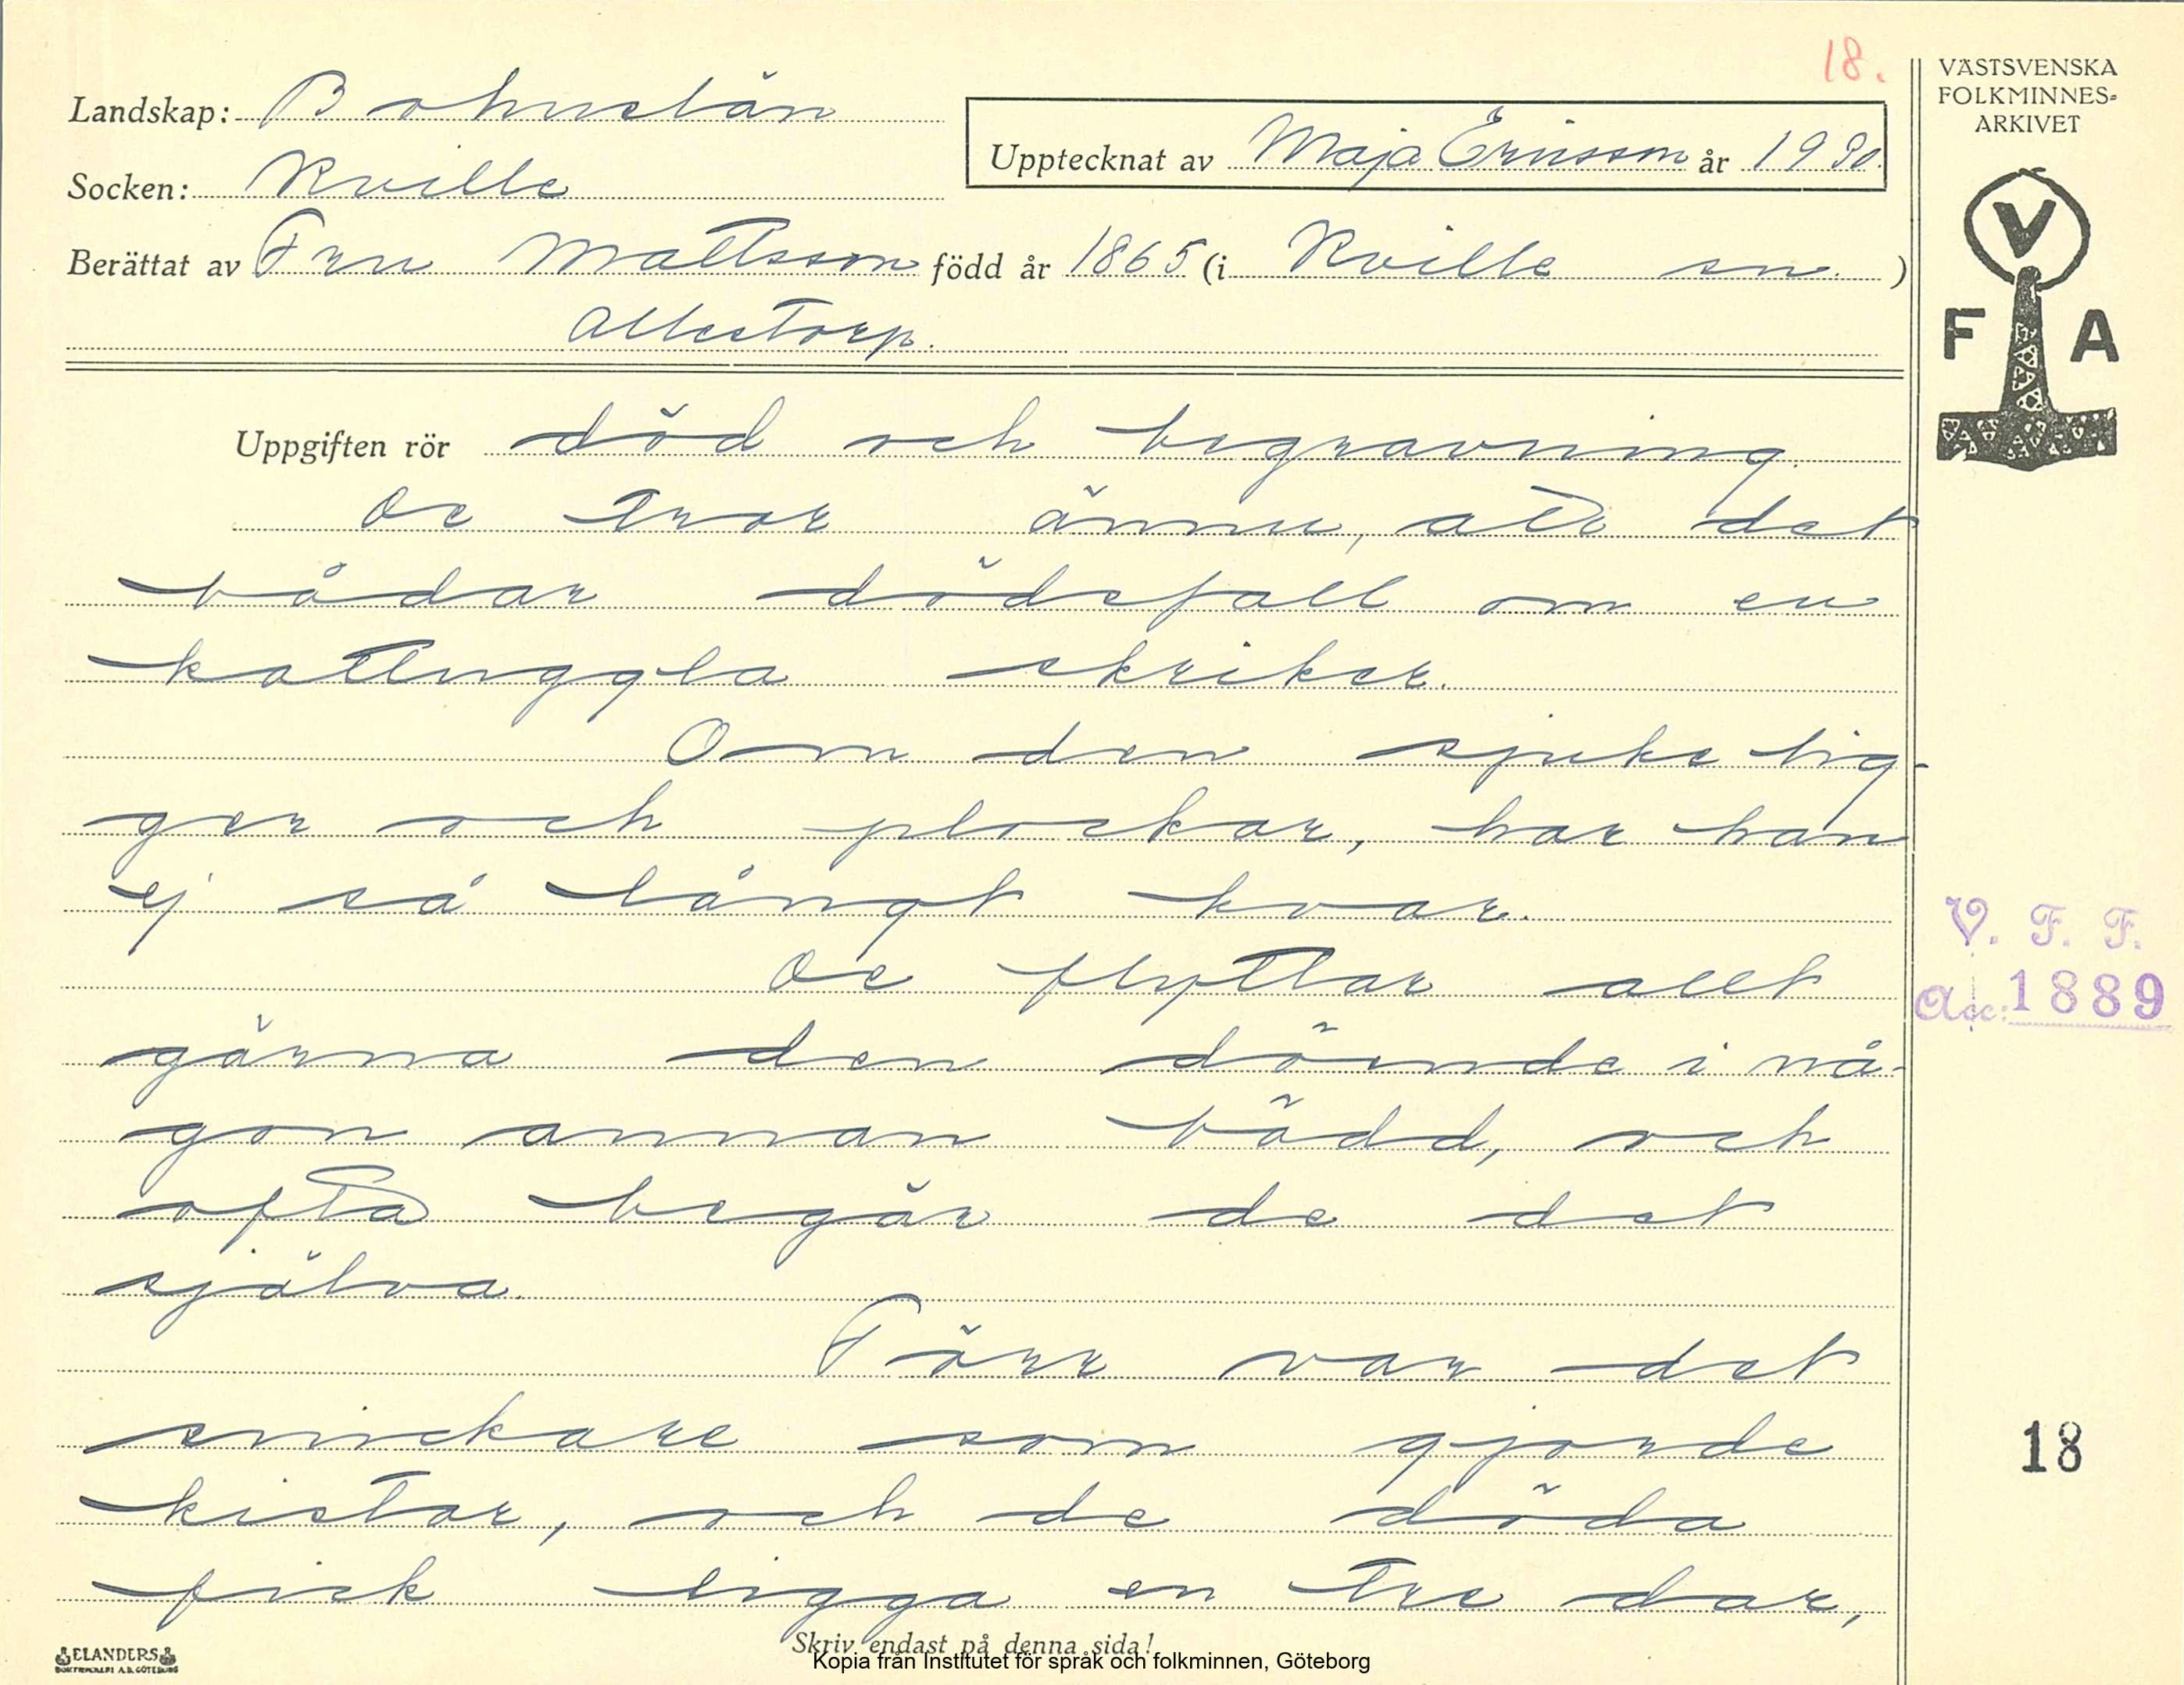 18.
VÄSTSVENSKA
FOLKMINNES=
ARKIVET
Landskap: Bohuslän
Upptecknat av Maja Ericsson år 1930.
Socken: Kville
Berättat av Fru Mattsson född år 1865 (i Kville sn. )
Allestorp.
V
F A
Uppgiften rör död och begravning.
De tror ännu, att det
bådar dödsfall om en
kattuggla skriker.
Om den sjuke lig-
ger och plockar, har han
ej så långt kvar.
V. F. F.
De flyttar allt
Acc: 1889
gärna den döende i nå-
gon annan bädd, och
ofta begär de det
själva.
Förr var det
snickare som gjorde
18
kistor, och de döda
fick ligga en tre dar,
Skriv endast på denna sida!
ELANDERS
BOKTRYCKERI A.B. GÖTEBORG
Kopia från Institutet för språk och folkminnen, Göteborg